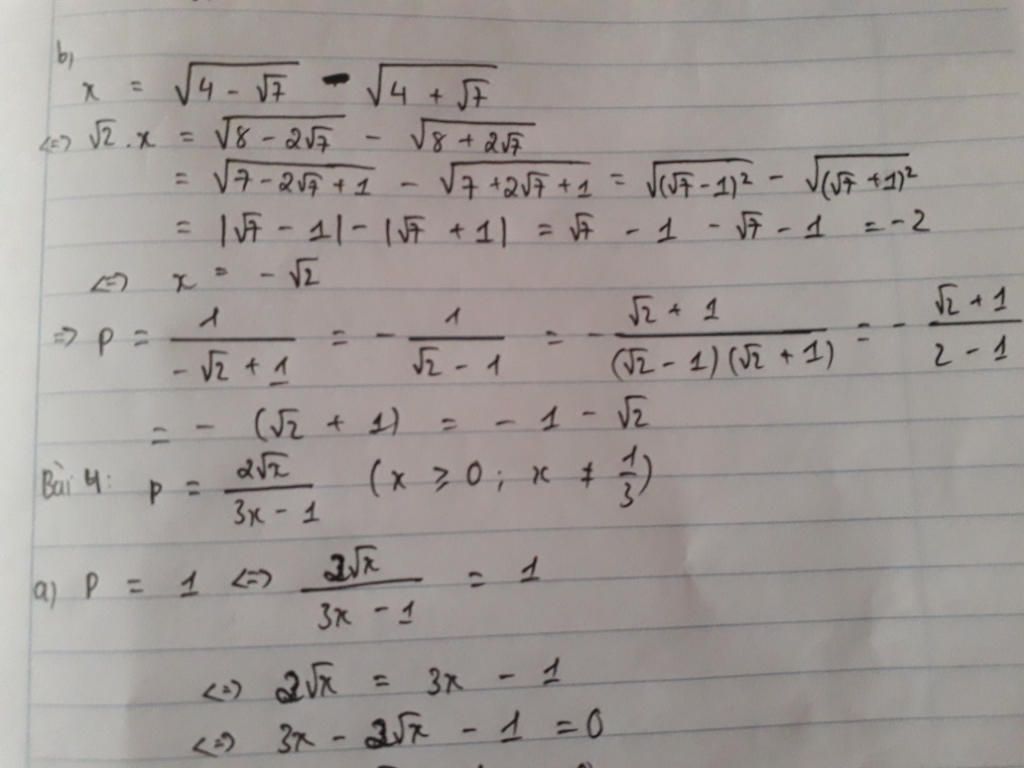 b)
x = √(4 - √7) - √(4 + √7)
<=> √2 . x = √(8 - 2√7) - √(8 + 2√7)
= √(7 - 2√7 + 1) - √(7 + 2√7 + 1) = √((√7 - 1)²) - √((√7 + 1)²)
= |√7 - 1| - |√7 + 1| = √7 - 1 - √7 - 1 = -2
<=> x = -√2
=> P = 1/(-√2 + 1) = - 1/(√2 - 1) = - (√2 + 1)/((√2 - 1)(√2 + 1)) = - (√2 + 1)/(2 - 1)
= - (√2 + 1) = - 1 - √2
Bài 4: P = 2√x/(3x - 1) (x ≥ 0 ; x ≠ 1/3)
a) P = 1 <=> 2√x/(3x - 1) = 1
<=> 2√x = 3x - 1
<=> 3x - 2√x - 1 = 0